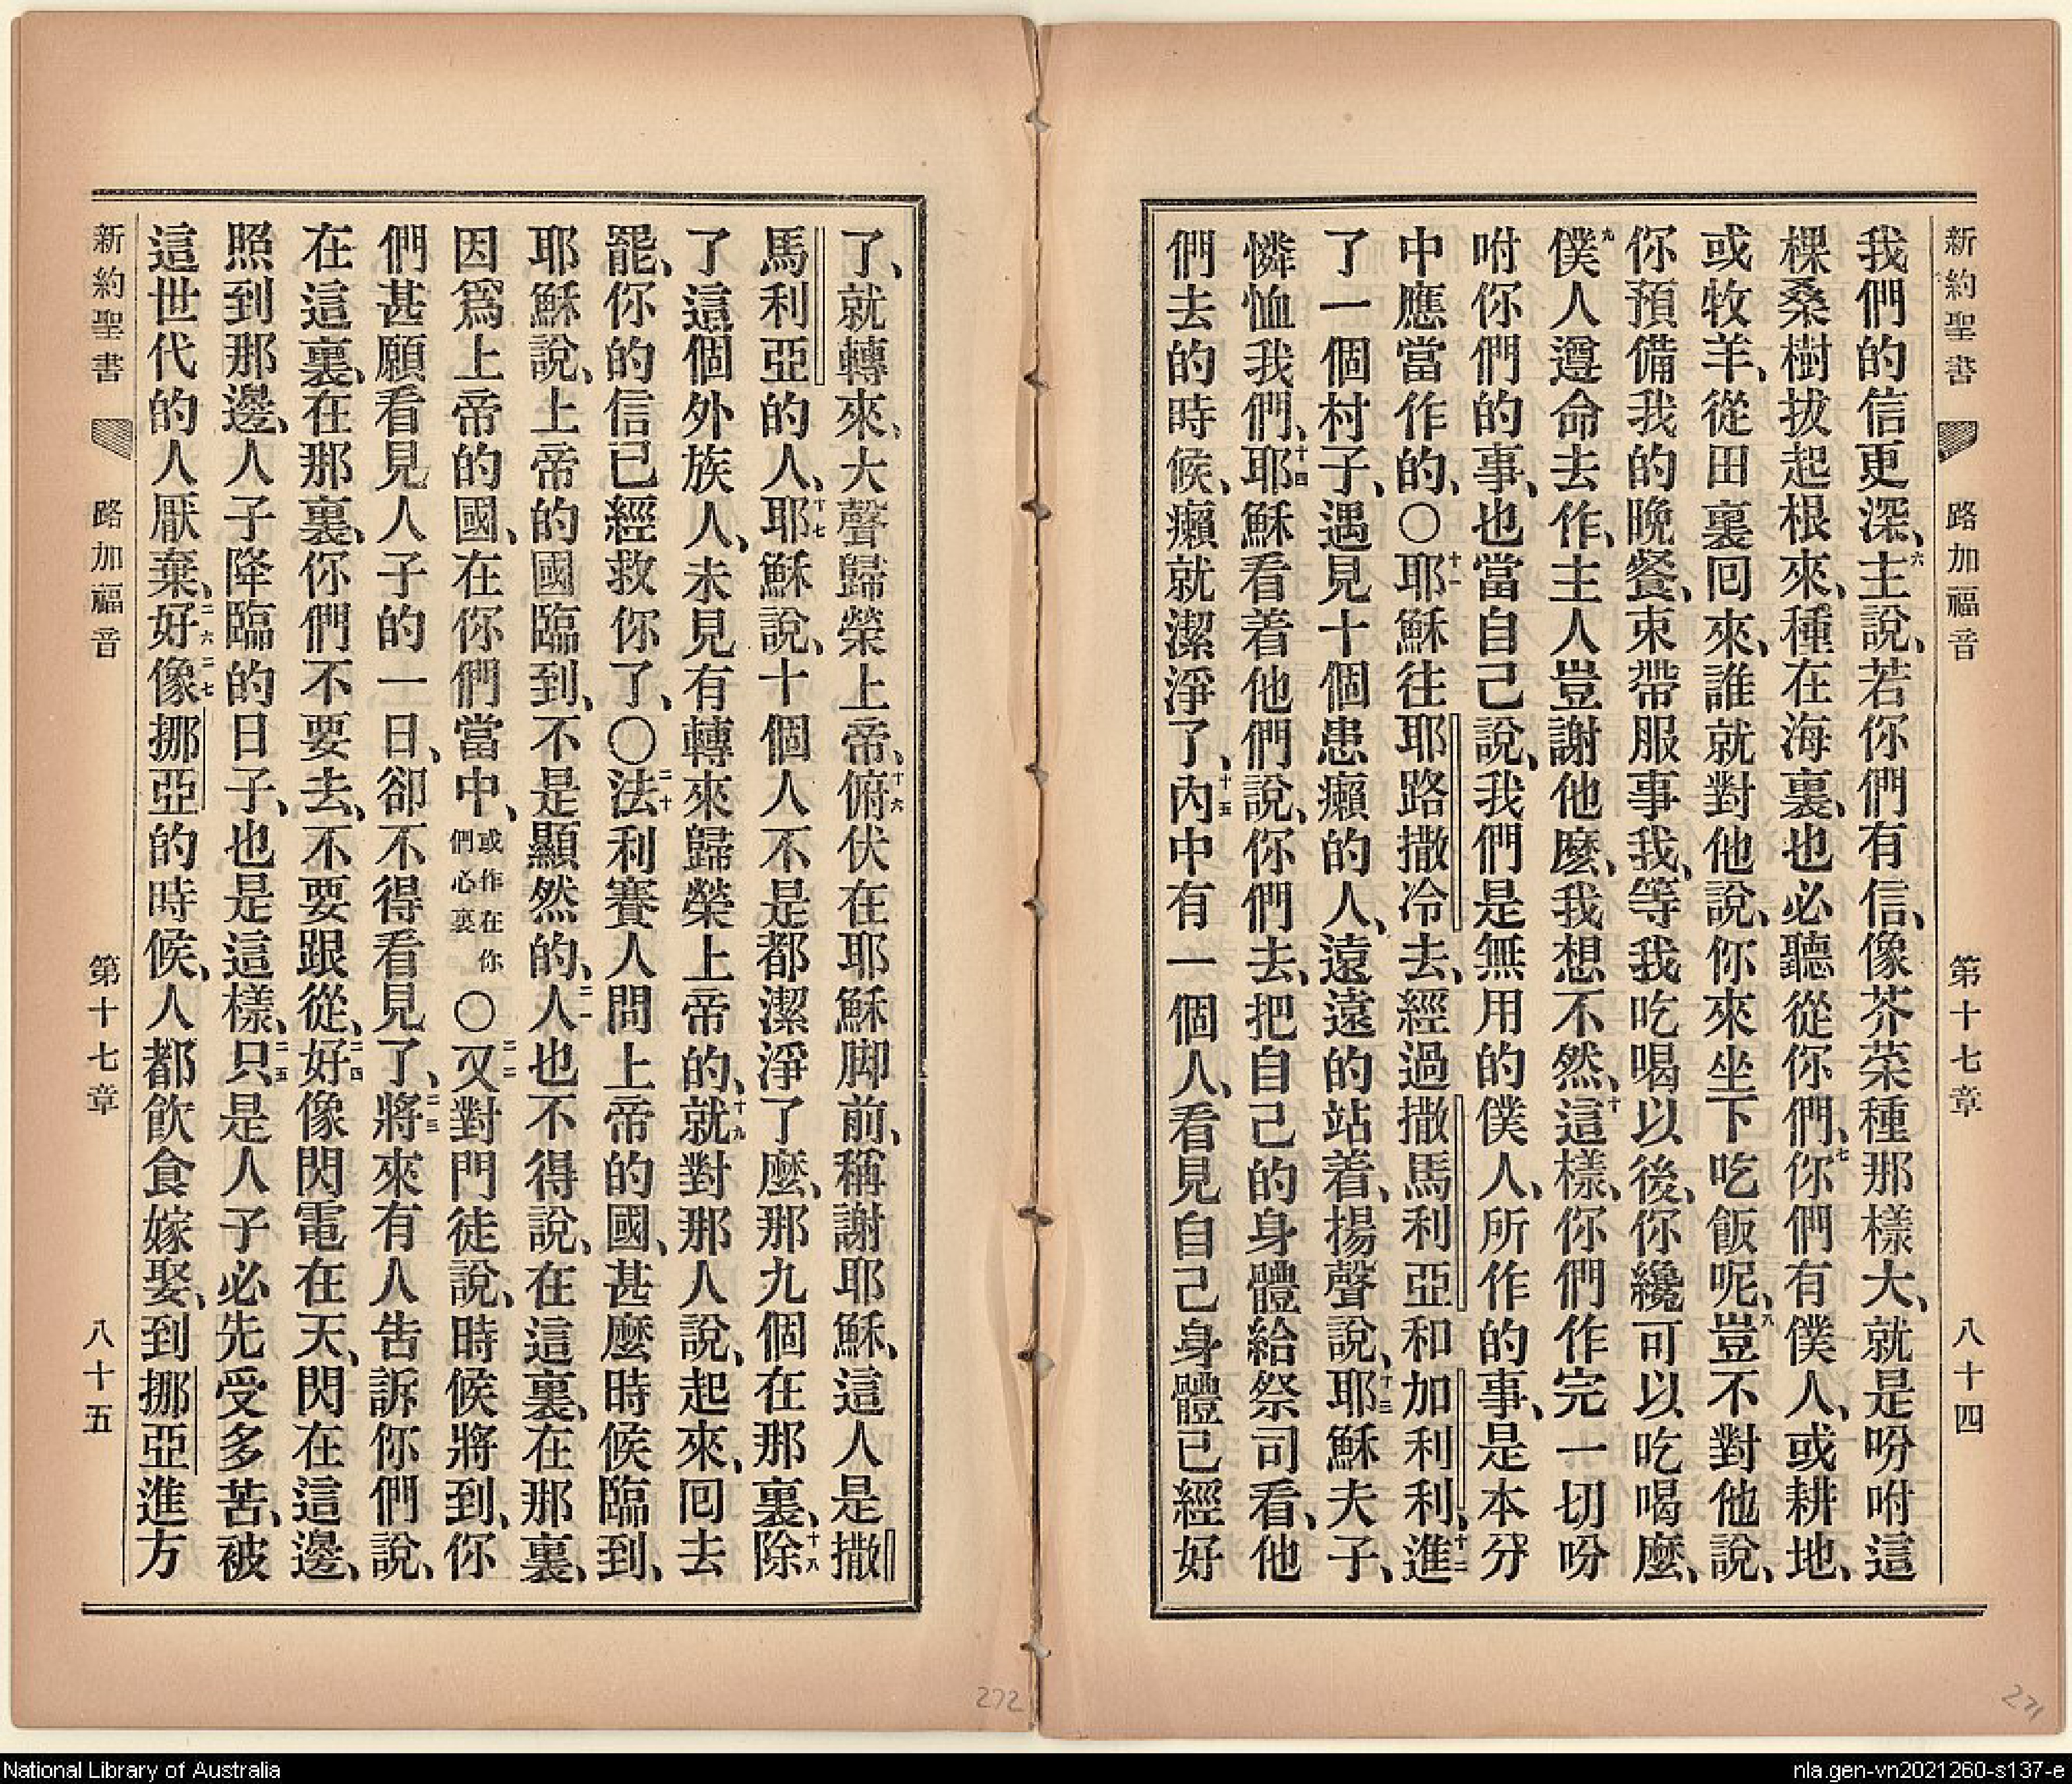 新約聖書 路加福音 第十七章 八十四
我們的信更深、六主說、若你們有信、像芥菜種那樣大、就是吩咐這
棵桑樹拔起根來、種在海裏、也必聽從你們、七你們有僕人、或耕地、
或牧羊、從田裏囘來、誰就對他說、你來坐下吃飯呢、八豈不對他說、
你預備我的晚餐、束帶服事我、等我吃喝以後、你纔可以吃喝麼、
九僕人遵命去作、主人豈謝他麼、我想不然、十這樣、你們作完一切吩
咐你們的事、也當自己說、我們是無用的僕人、所作的事、是本分
中應當作的、〇十一耶穌往耶路撒冷去、經過撒馬利亞和加利利、十二進
了一個村子、遇見十個患癩的人、遠遠的站着、揚聲說、十三耶穌夫子、
憐恤我們、十四耶穌看着他們說、你們去、把自己的身體給祭司看、他
們去的時候、癩就潔淨了、十五內中有一個人、看見自己身體已經好
了、就轉來、大聲歸榮上帝、十六俯伏在耶穌脚前、稱謝耶穌、這人是撒
馬利亞的人、十七耶穌說、十個人不是都潔淨了麼、那九個在那裏、十八除
了這個外族人、未見有轉來歸榮上帝的、十九就對那人說、起來、囘去
罷、你的信已經救你了、〇二十法利賽人問上帝的國、甚麼時候臨到、
耶穌說、上帝的國臨到、不是顯然的、二一人也不得說、在這裏、在那裏、
因爲上帝的國、在你們當中、或作在你們心裏〇二二又對門徒說、時候將到、你
們甚願看見人子的一日、卻不得看見了、二三將來有人告訴你們說、
在這裏、在那裏、你們不要去、不要跟從、二四好像閃電在天、閃在這邊、
照到那邊、人子降臨的日子、也是這樣、二五只是人子必先受多苦、被
這世代的人厭棄、二六二七好像挪亞的時候、人都飲食嫁娶、到挪亞進方
新約聖書 路加福音 第十七章 八十五
272
271
National Library of Australia
nla.gen-vn2021260-s137-e